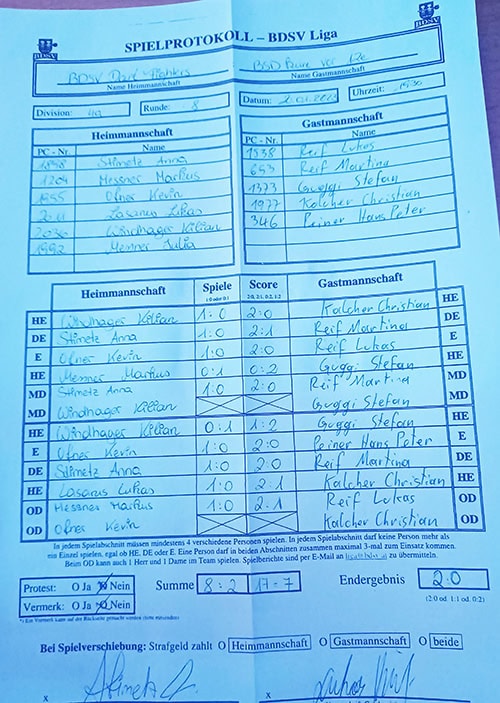 BDSV
BDSV
SPIELPROTOKOLL – BDSV Liga
BDSV Dart-Fighters
BSD
Name Heimmannschaft
Name Gastmannschaft
Division:
Runde: 8
Datum:
Uhrzeit:
Heimmannschaft
Gastmannschaft
PC - Nr. Name
PC - Nr. Name
Stimetz Anna
1938 Reif Lukas
1204 Messner Markus
653 Reif Martina
Ofner Kevin
1373 Guggi Stefan
Lasarus Lukas
1977 Kolcher Christian
Windhager Kilian
346 Peiner Hans Peter
1992 Messner Julia
Heimmannschaft Spiele Score Gastmannschaft
1:0 oder 0:1 2:0, 2:1, 0:2, 1:2
HE Windhager Kilian 1:0 2:0 Kalcher Christian HE
DE Stimetz Anna 1:0 2:1 Reif Martina DE
E Ofner Kevin 1:0 2:0 Reif Lukas E
HE Messner Markus 0:1 0:2 Guggi Stefan HE
MD Stimetz Anna 1:0 2:0 Reif Martina MD
MD Windhager Kilian Guggi Stefan MD
HE Windhager Kilian 0:1 1:2 Guggi Stefan HE
E Ofner Kevin 1:0 2:0 Peiner Hans Peter E
DE Stimetz Anna 1:0 2:0 Reif Martina DE
HE Lasarus Lukas 1:0 2:1 Kalcher Christian HE
OD Messner Markus 1:0 2:1 Reif Lukas OD
OD Ofner Kevin Kalcher Christian OD
In jedem Spielabschnitt müssen mindestens 4 verschiedene Personen spielen. In jedem Spielabschnitt darf keine Person mehr als
ein Einzel spielen, egal ob HE, DE oder E. Eine Person darf in beiden Abschnitten zusammen maximal 3-mal zum Einsatz kommen.
Beim OD kann auch 1 Herr und 1 Dame im Team spielen. Spielberichte sind per E-Mail an zu übermitteln.
Protest: O Ja O Nein
Summe 8:2 17:7 Endergebnis 2:0
Vermerk: O Ja O Nein
(2:0 od. 1:1 od. 0:2)
*) Ein Vermerk kann auf der Rückseite gemacht werden (bitte mitsenden)
Bei Spielverschiebung: Strafgeld zahlt O Heimmannschaft O Gastmannschaft O beide
x
x